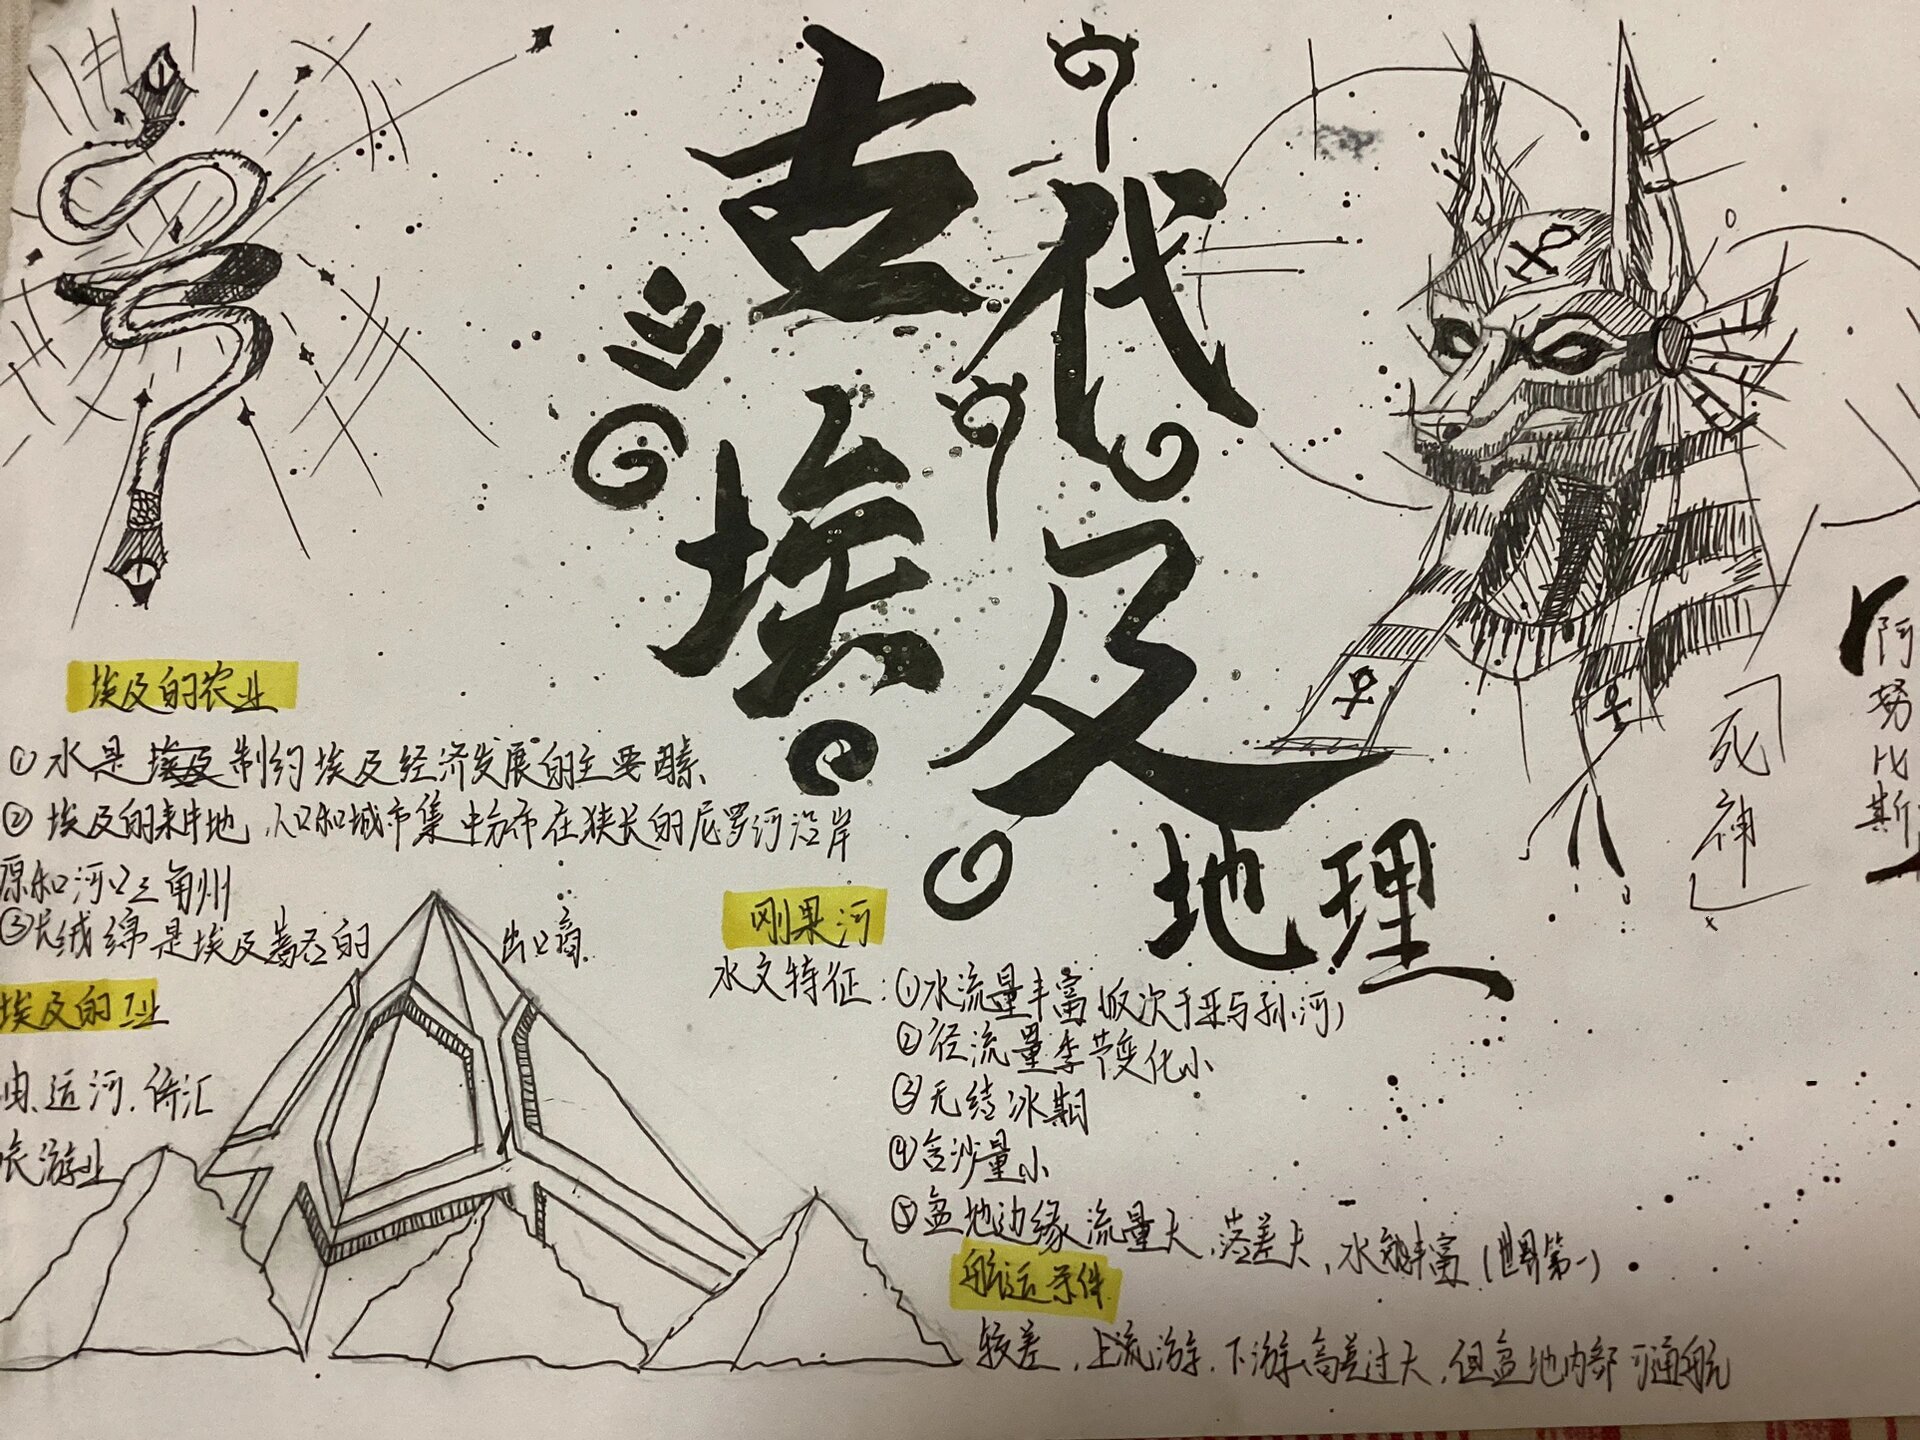 古代
埃及
地理
阿努比斯
死神
埃及的农业
①水是制约埃及经济发展的主要因素
②埃及的耕地,人口和城市集中分布在狭长的尼罗河沿岸
原和河口三角州
③长绒绵是埃及著名的出口商
埃及的工业
油、运河、侨汇
旅游业
刚果河
水文特征:①水流量丰富(仅次于亚马孙河)
②径流量季节变化小
③无结冰期
④含沙量小
⑤盆地边缘流量大,落差大,水能丰富(世界第一)
航运条件
较差,上流游、下游高差过大,但盆地内部可通航